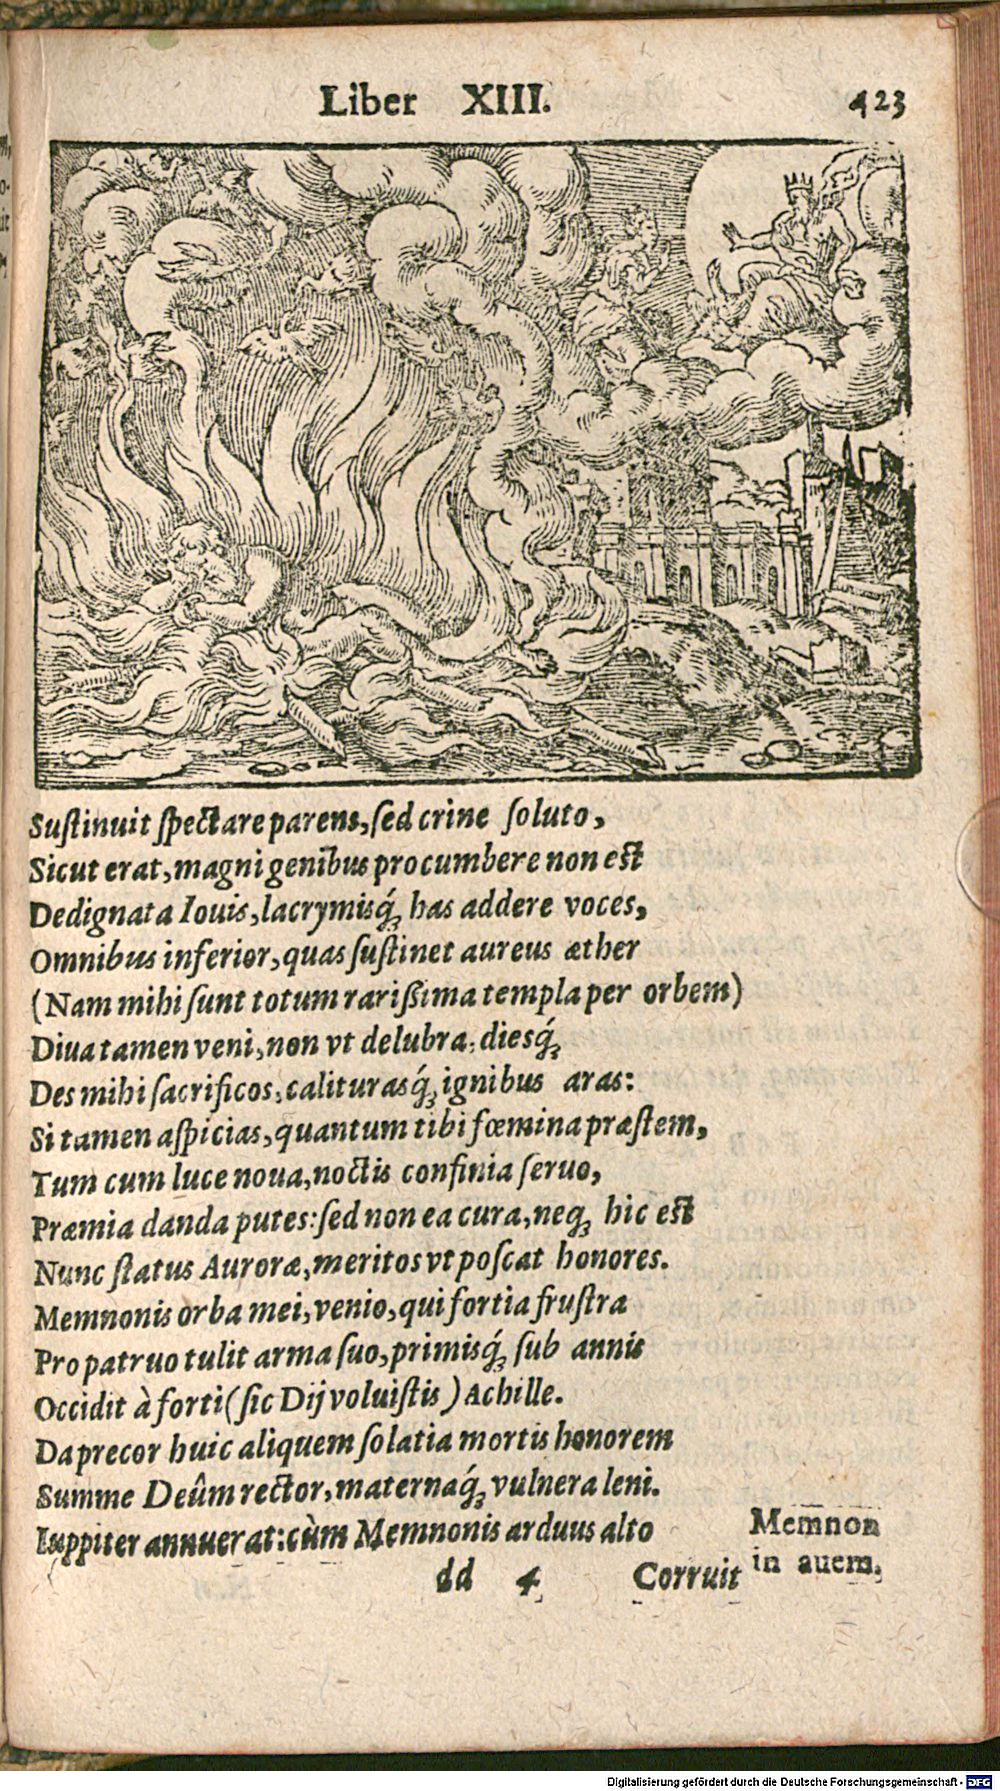 Liber XIII. 423
Sustinuit spectare parens, sed crine soluto,
Sicut erat, magni genibus procumbere non est
Dedignata Iouis, lacrymisq́; has addere voces,
Omnibus inferior, quas sustinet aureus æther
(Nam mihi sunt totum rarißima templa per orbem)
Diua tamen veni, non vt delubra, diesq́;
Des mihi sacrificos, caliturasq́; ignibus aras:
Si tamen aspicias, quantum tibi fœmina præstem,
Tum cum luce noua, noctis confinia seruo,
Præmia danda putes: sed non ea cura, neq; hic est
Nunc status Auroræ, meritos vt poscat honores.
Memnonis orba mei, venio, qui fortia frustra
Pro patruo tulit arma suo, primisq́; sub annis
Occidit à forti (sic Dij voluistis) Achille.
Da precor huic aliquem solatia mortis honorem
Summe Deûm rector, maternaq́; vulnera leni.
Iuppiter annuerat: cùm Memnonis arduus alto
Memnon
in auem.
dd 4 Corruit
Digitalisierung gefördert durch die Deutsche Forschungsgemeinschaft - DFG